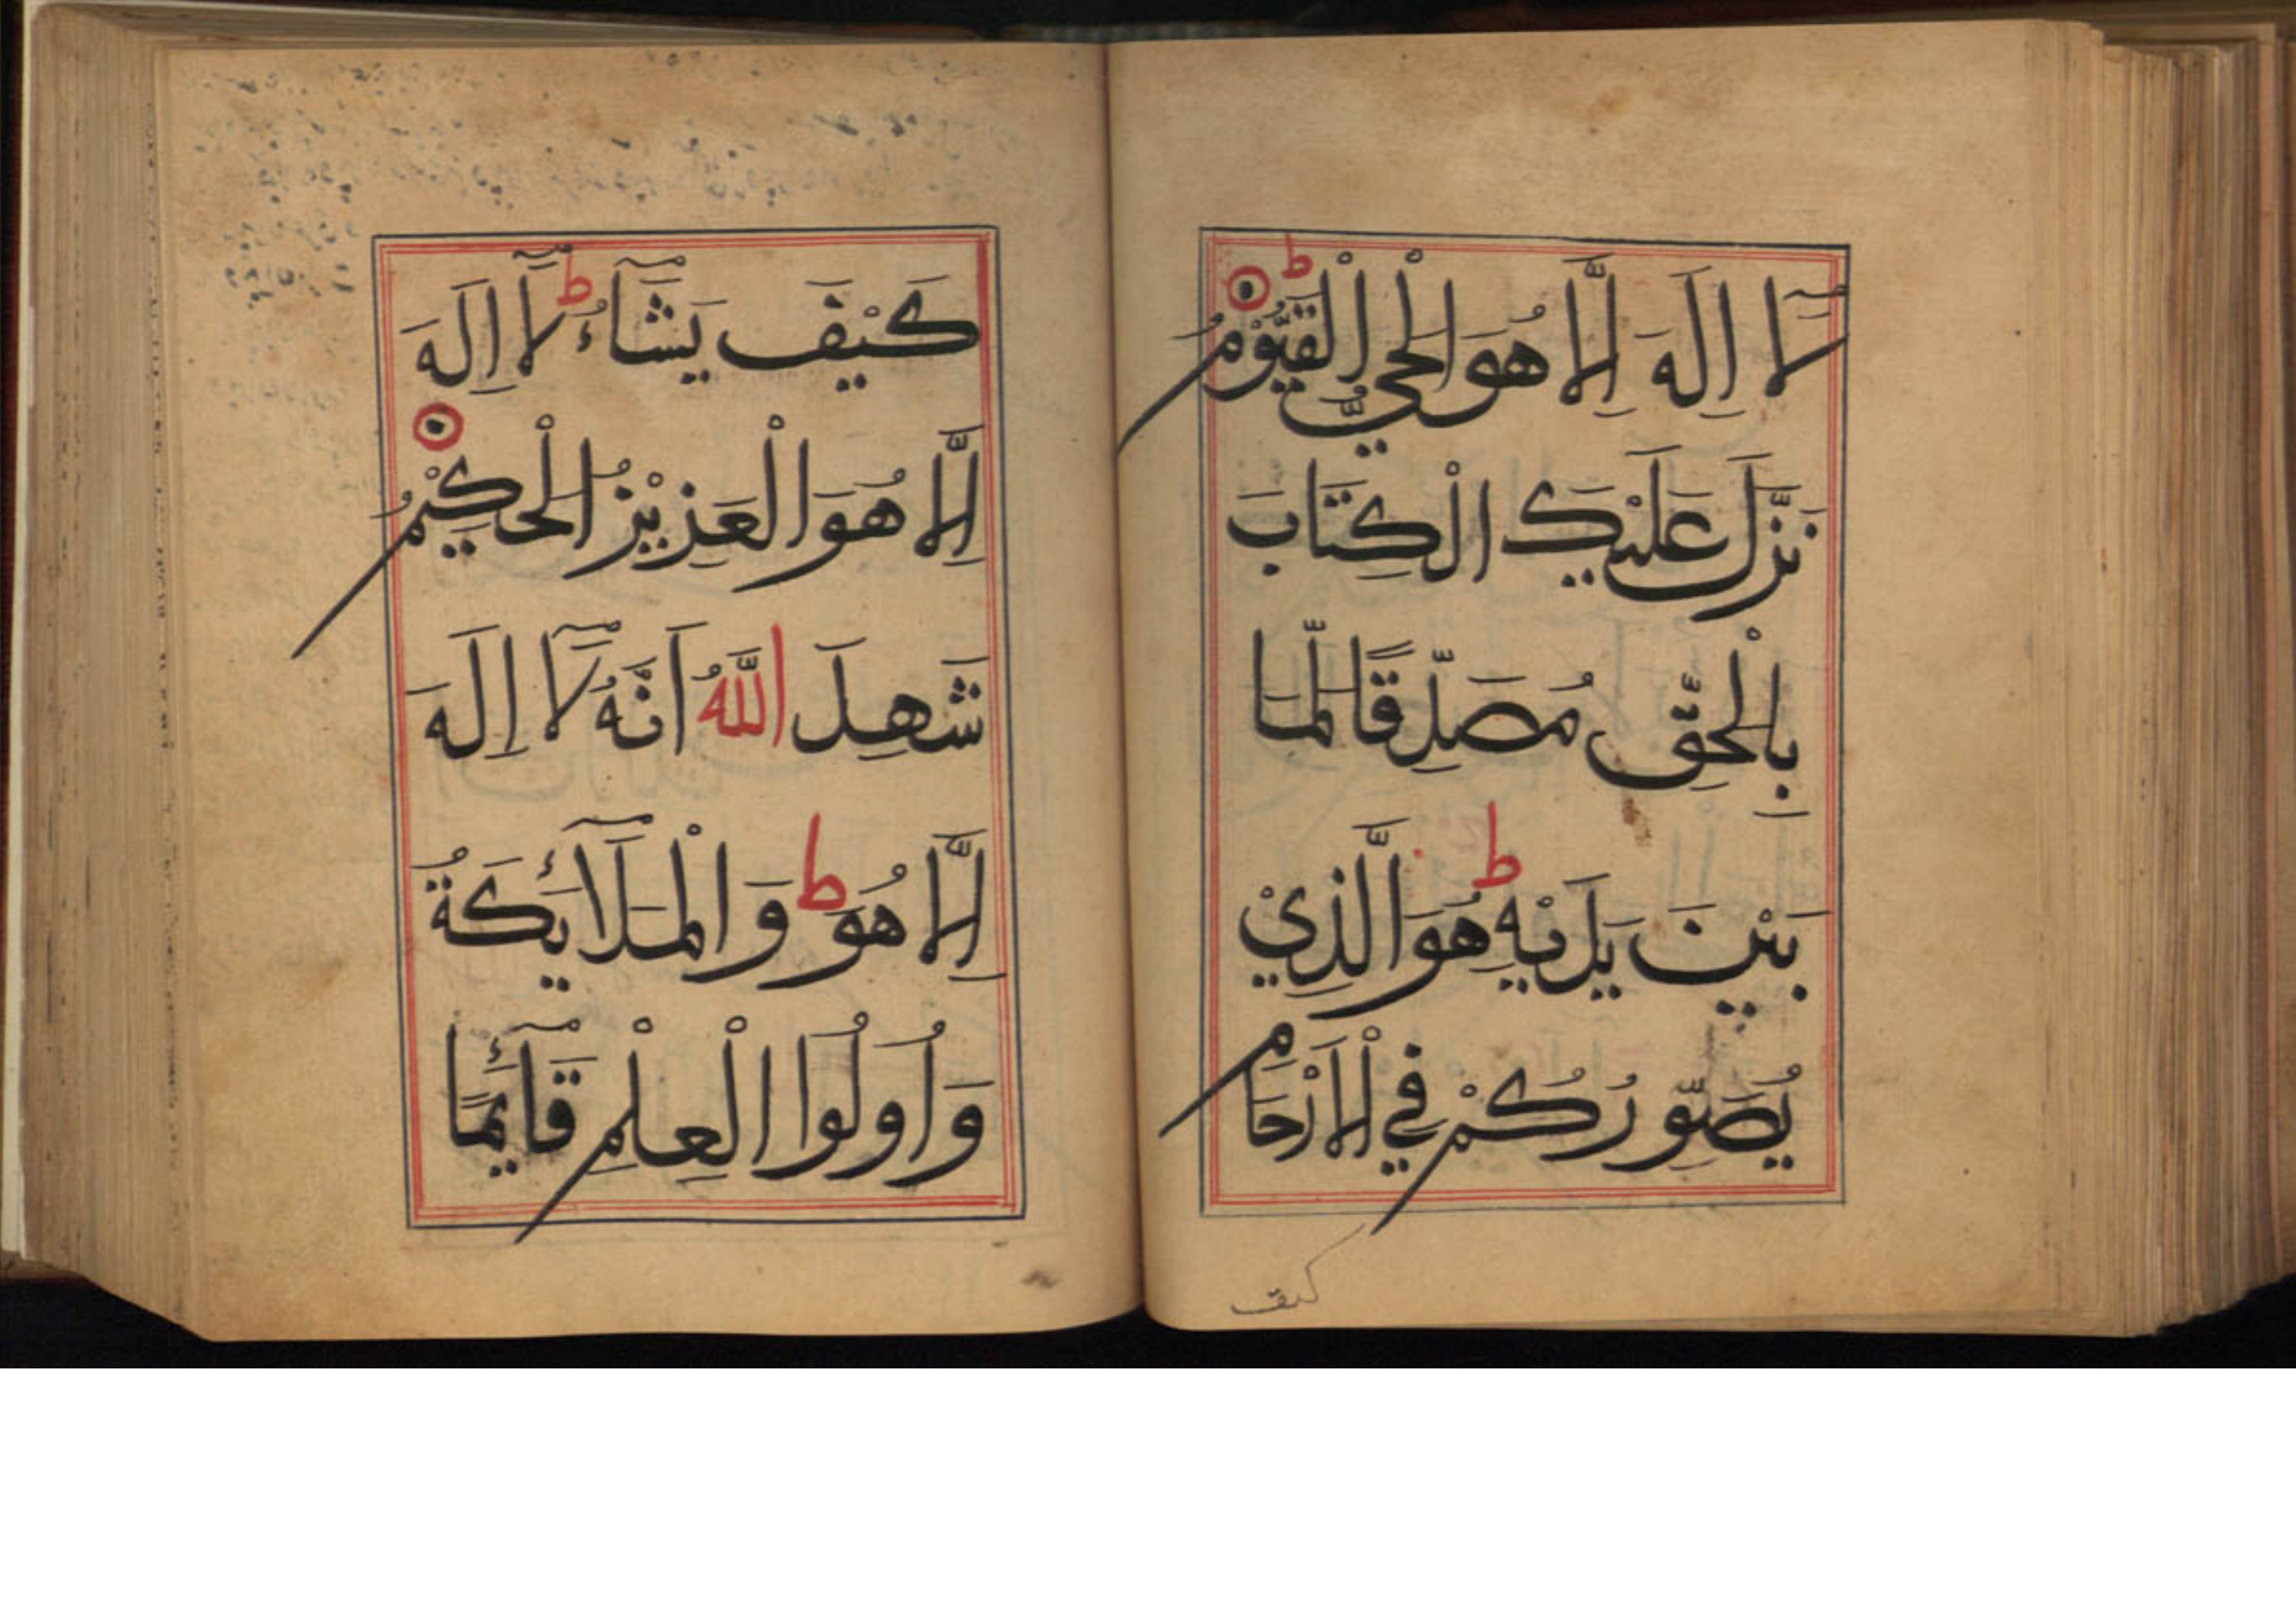 لَآ اِلَهَ اِلَّا هُوَ الْحَيُّ الْقَيُّوْمُ ط
نَزَّلَ عَلَيْكَ الْكِتَابَ
بِالْحَقِّ مُصَدِّقًا لِّمَا
بَيْنَ يَدَيْهِ ط هُوَ الَّذِيْ
يُصَوِّرُكُمْ فِي الْاَرْحَامِ
كيف
كَيْفَ يَشَآءُ ط لَآ اِلَهَ
اِلَّا هُوَ الْعَزِيْزُ الْحَكِيْمُ
شَهِدَ اللَّهُ اَنَّهُ لَآ اِلَهَ
اِلَّا هُوَ ط وَالْمَلَآئِكَةُ
وَاُولُوا الْعِلْمِ قَآئِمًا